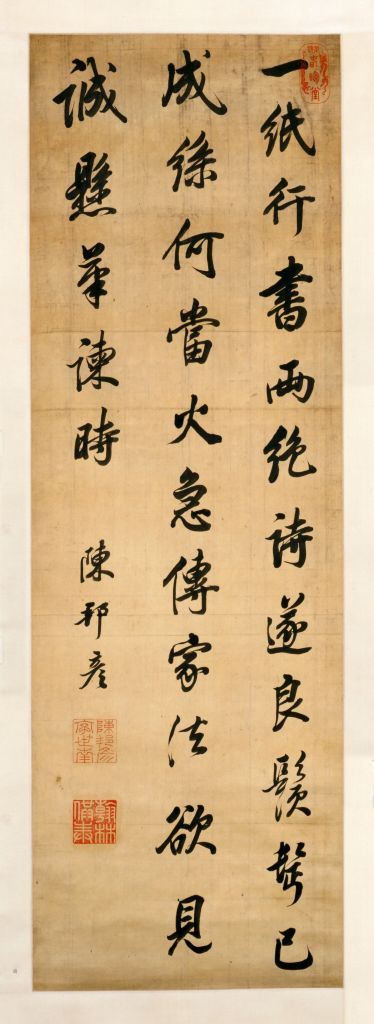 一紙行書兩絕詩遂良鬚鬢已
成絲何當火急傳家法欲見
誠懸筆諫時
陳邦彥